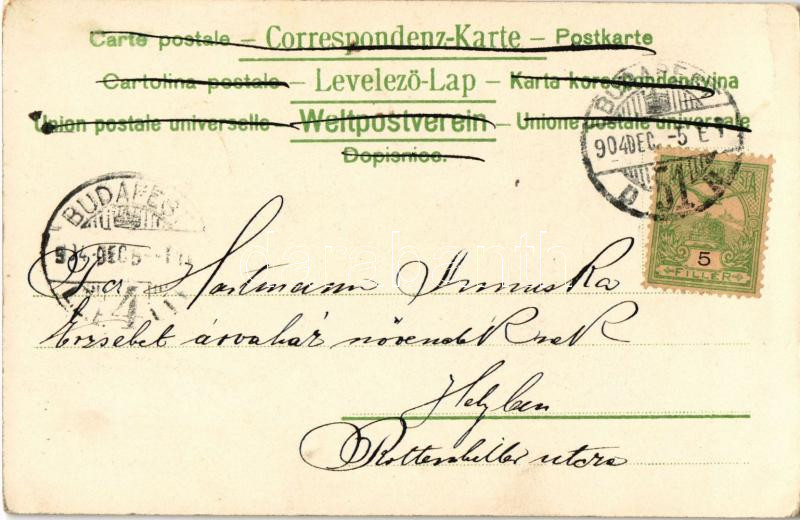 Carte postale – Correspondenz-Karte – Postkarte
Cartolina postale – Levelező-Lap – Karta korespondencyjna
Union postale universelle – Weltpostverein – Unione postale universale
Dopisnice.
BUDAPEST
904 DEC. -5 E
51
5
FILLER
BUDAPEST
DEC 5
4
Hartmann Annuska
Erzsébet árvaház növendékének
Helyben
Rottenbiller utcza